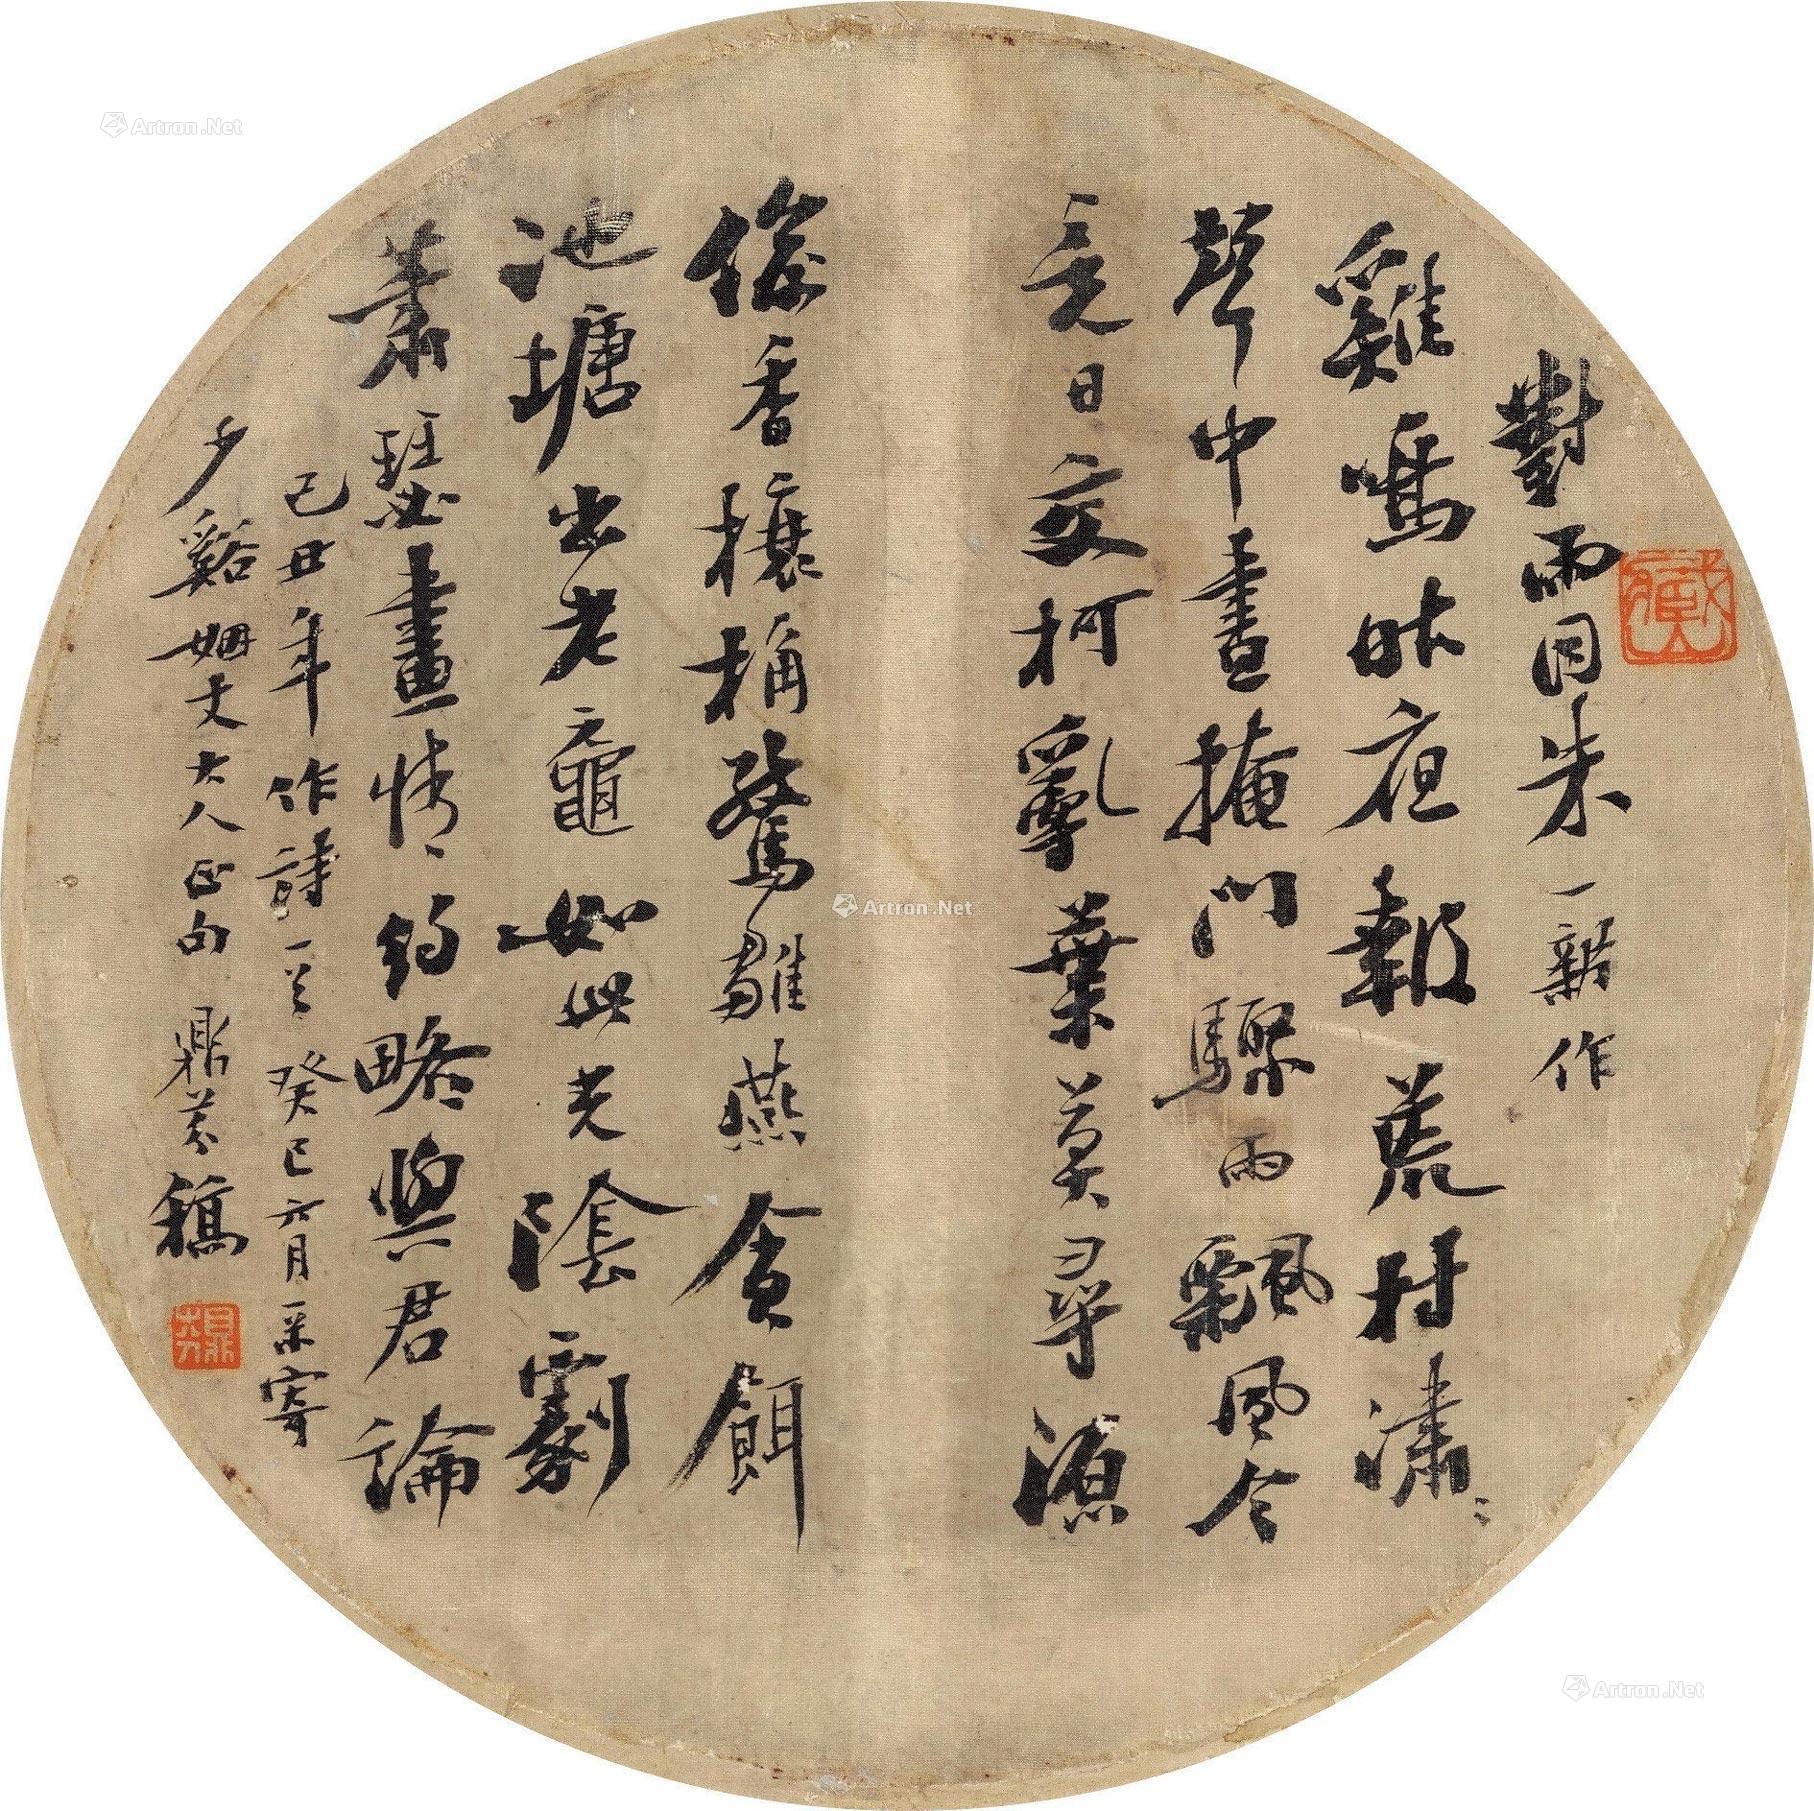 對雨同朱一新作
雞鳴昨夜報荒村瀟々
聲中晝掩門驟雨飄風今
竟日交柯亂葉莫尋源
香驚雛燕貪餌
池塘出老黿如此光陰劇
蕭瑟畫情々約略與君論
己丑年作詩一首 癸巳六月录寄
少谿姻丈大人正句 鼎芬稿
鼎芬
Artron.Net
Artron.Net
Artron.Net